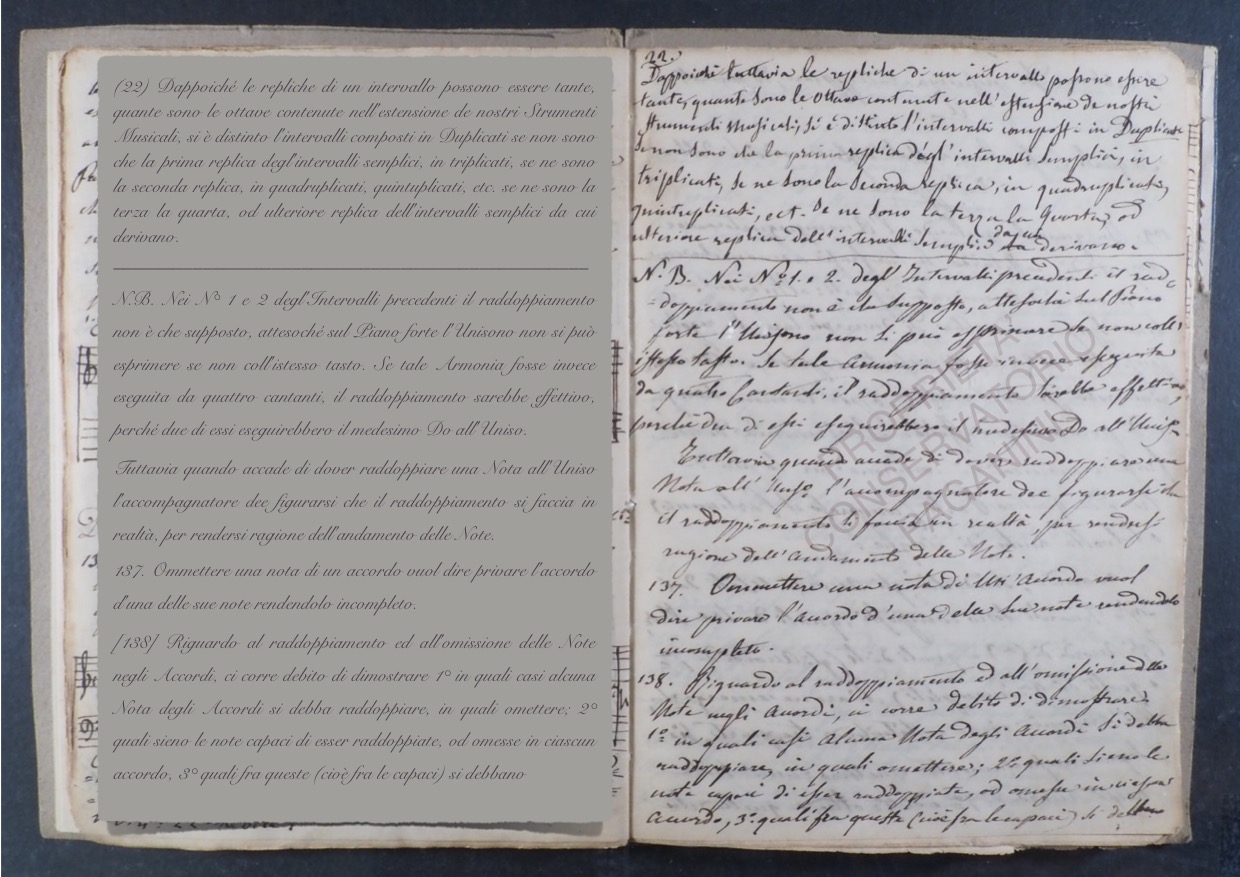 (22) Dappoiché le repliche di un intervallo possono essere tante,
quante sono le ottave contenute nell'estensione de nostri Strumenti
Musicali, si è distinto l'intervalli composti in Duplicati se non sono
che la prima replica degl'intervalli semplici, in triplicati, se ne sono
la seconda replica, in quadruplicati, quintuplicati, etc. se ne sono la
terza la quarta, od ulteriore replica dell'intervalli semplici da cui
derivano.
N.B. Nei Nº 1 e 2 degl'Intervalli precedenti il raddoppiamento
non è che supposto, attesochè sul Piano forte l'Unisono non si può
esprimere se non coll'istesso tasto. Se tale Armonia fosse invece
eseguita da quattro cantanti, il raddoppiamento sarebbe effettivo,
perché due di essi eseguirebbero il medesimo Do all'Uniso.
Tuttavia quando accade di dover raddoppiare una Nota all'Uniso
l'accompagnatore dee figurarsi che il raddoppiamento si faccia in
realtà, per rendersi ragione dell'andamento delle Note.
137. Ommettere una nota di un accordo vuol dire privare l'accordo
d'una delle sue note rendendolo incompleto.
[138] Riguardo al raddoppiamento ed all'omissione delle Note
negli Accordi, ci corre debito di dimostrare 1º in quali casi alcuna
Nota degli Accordi si debba raddoppiare, in quali omettere; 2º
quali sieno le note capaci di esser raddoppiate, od omesse in ciascun
accordo, 3º quali fra queste (cioè fra le capaci) si debbano
22.
Dappoichè tuttavia le repliche di un intervallo possono essere
tante, quante sono le ottave contenute nell'estensione de nostri
strumenti musicali, si è distinto l'intervalli composti in Duplicati
se non sono che la prima replica degl'intervalli semplici, in
triplicati, se ne sono la seconda replica, in quadruplicati,
quintuplicati, ect. se ne sono la terza la quarta, od
ulteriore replica dell'intervalli semplici da cui derivano.
N.B. Nei Nº 1. e 2. degl'Intervalli precedenti il rad=
=doppiamento non è che supposto, attesochè sul Piano
forte l'Unisono non si può esprimere se non coll'
istesso tasto. Se tale armonia fosse invece eseguita
da quatro Cantanti, il raddoppiamento sarebbe effettivo,
perchè due di essi eseguirebbero il medesimo Do all'Uniso
Tuttavia quando accade di dovere raddoppiare una
Nota all'Uniso l'accompagnatore dee figurarsi che
il raddoppiamento si faccia in realtà, per rendersi
ragione dell'andamento delle Note.
137. Ommettere una nota di un'acordo vuol
dire privare l'acordo d'una delle sue note rendendolo
incompleto.
138. Riguardo al raddoppiamento ed all'omissione delle
Note negli acordi, ci corre debito di dimostrare
1º in quali casi alcuna Nota degli acordi si debba
raddoppiare, in quali omettere; 2º quali sieno le
note capaci di esser raddoppiate, od omesse in ciascun
acordo, 3º quali fra queste (cioè fra le capaci) si debbano
PROPRIETÀ
CONSERVATORIO
PAGANINI